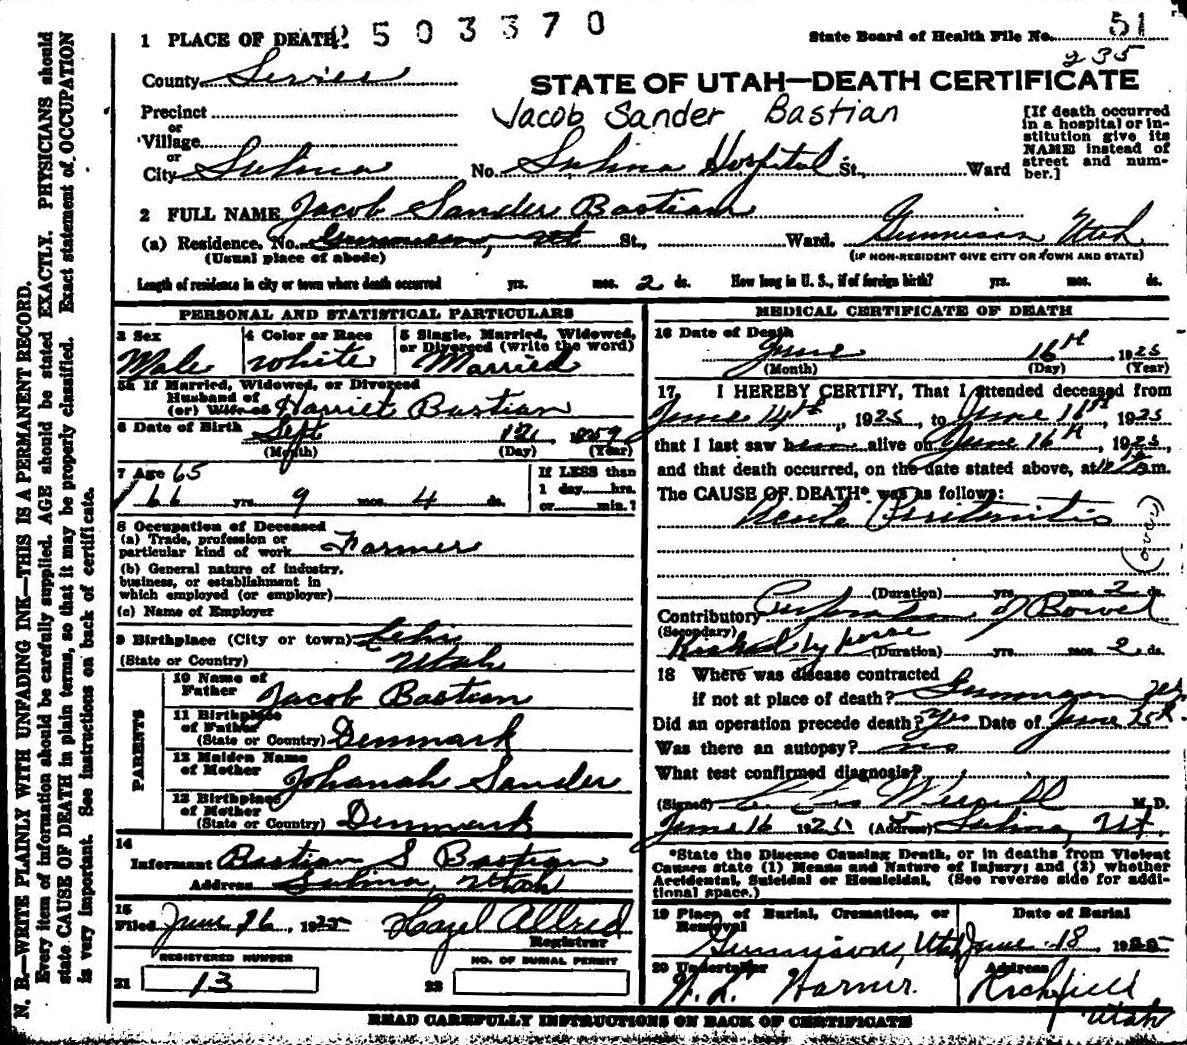 2503370
1 PLACE OF DEATH
State Board of Health File No. 51
235
County Sevier
STATE OF UTAH—DEATH CERTIFICATE
Precinct
Jacob Sander Bastian
[If death occurred in a hospital or institution give its NAME instead of street and number.]
or
Village
or
City Salina No. Salina Hospital St., Ward
2 FULL NAME Jacob Sander Bastian
(a) Residence. No. Gunnison, Ut St., Ward. Gunnison Utah
(Usual place of abode) (IF NON-RESIDENT GIVE CITY OR TOWN AND STATE)
Length of residence in city or town where death occurred yrs. mos. 2 ds. How long in U. S., if of foreign birth? yrs. mos. ds.
PERSONAL AND STATISTICAL PARTICULARS
3 Sex Male
4 Color or Race White
5 Single, Married, Widowed, or Divorced (write the word) Married
5a If Married, Widowed, or Divorced
Husband of
(or) Wife of Harriet Bastian
6 Date of Birth Sept 12, 1859
(Month) (Day) (Year)
7 Age 65
66 yrs. 9 mos. 4 ds.
If LESS than
1 day hrs.
or min.?
8 Occupation of Deceased
(a) Trade, profession or
particular kind of work Farmer
(b) General nature of industry,
business, or establishment in
which employed (or employer)
(c) Name of Employer
9 Birthplace (City or town) Lehi
(State or Country) Utah
PARENTS
10 Name of
Father Jacob Bastian
11 Birthplace
of Father
(State or Country) Denmark
12 Maiden Name
of Mother Johanah Sander
13 Birthplace
of Mother
(State or Country) Denmark
14
Informant Bastian S Bastian
Address Salina, Utah
15
Filed June 26, 1925 Hazel Allred
Registrar
REGISTERED NUMBER
21 13
NO. OF BURIAL PERMIT
22
MEDICAL CERTIFICATE OF DEATH
16 Date of Death
June 16th, 1925
(Month) (Day) (Year)
17. I HEREBY CERTIFY, That I attended deceased from
June 14th, 1925, to June 16th, 1925
that I last saw him alive on June 16th, 1925,
and that death occurred, on the date stated above, at m.
The CAUSE OF DEATH* was as follows:
Acute Peritonitis
(Duration) yrs. mos. 2 ds.
Contributory Perforation of Bowel
(Secondary)
Kicked by horse (Duration) yrs. mos. 2 ds.
18 Where was disease contracted
if not at place of death? Gunnison
Did an operation precede death? Yes Date of June 15th
Was there an autopsy? no
What test confirmed diagnosis?
(Signed) M.D.
June 16 1925 (Address) Salina, Ut.
*State the Disease Causing Death, or in deaths from Violent
Causes state (1) Means and Nature of Injury; and (2) whether
Accidental, Suicidal or Homicidal. (See reverse side for additional space.)
19 Place of Burial, Cremation, or
Removal
Date of Burial
Gunnison, Utah June 18, 1925
20 Undertaker
Address
Richfield
Utah
READ CAREFULLY INSTRUCTIONS ON BACK OF CERTIFICATE
N. B.—WRITE PLAINLY WITH UNFADING INK—THIS IS A PERMANENT RECORD.
Every item of information should be carefully supplied. AGE should be stated EXACTLY. PHYSICIANS should
state CAUSE OF DEATH in plain terms, so that it may be properly classified. Exact statement of OCCUPATION
is very important. See instructions on back of certificate.